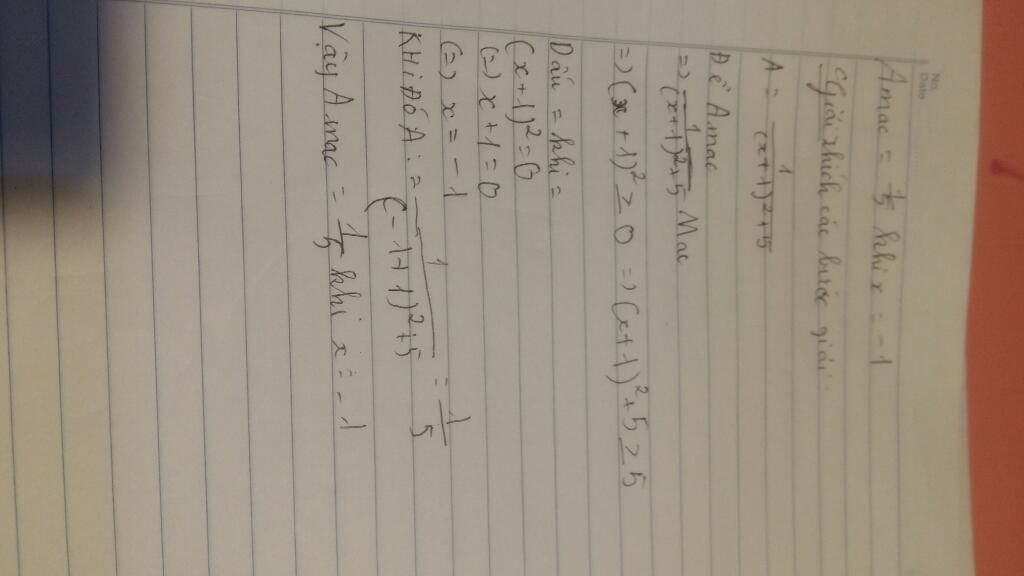 No.
Date
Amac = 1/5 khi x = -1
Giải thích các bước giải:
A = 1/((x+1)²+5)
Để Amac
=> 1/((x+1)²+5) Mac
=> (x+1)² ≥ 0 => (x+1)²+5 ≥ 5
Dấu = khi =
(x+1)² = 0
(=) x+1 = 0
(=) x = -1
KHi ĐÓ A: = 1/((-1+1)²+5) = 1/5
Vậy Amac = 1/5 khi x = -1